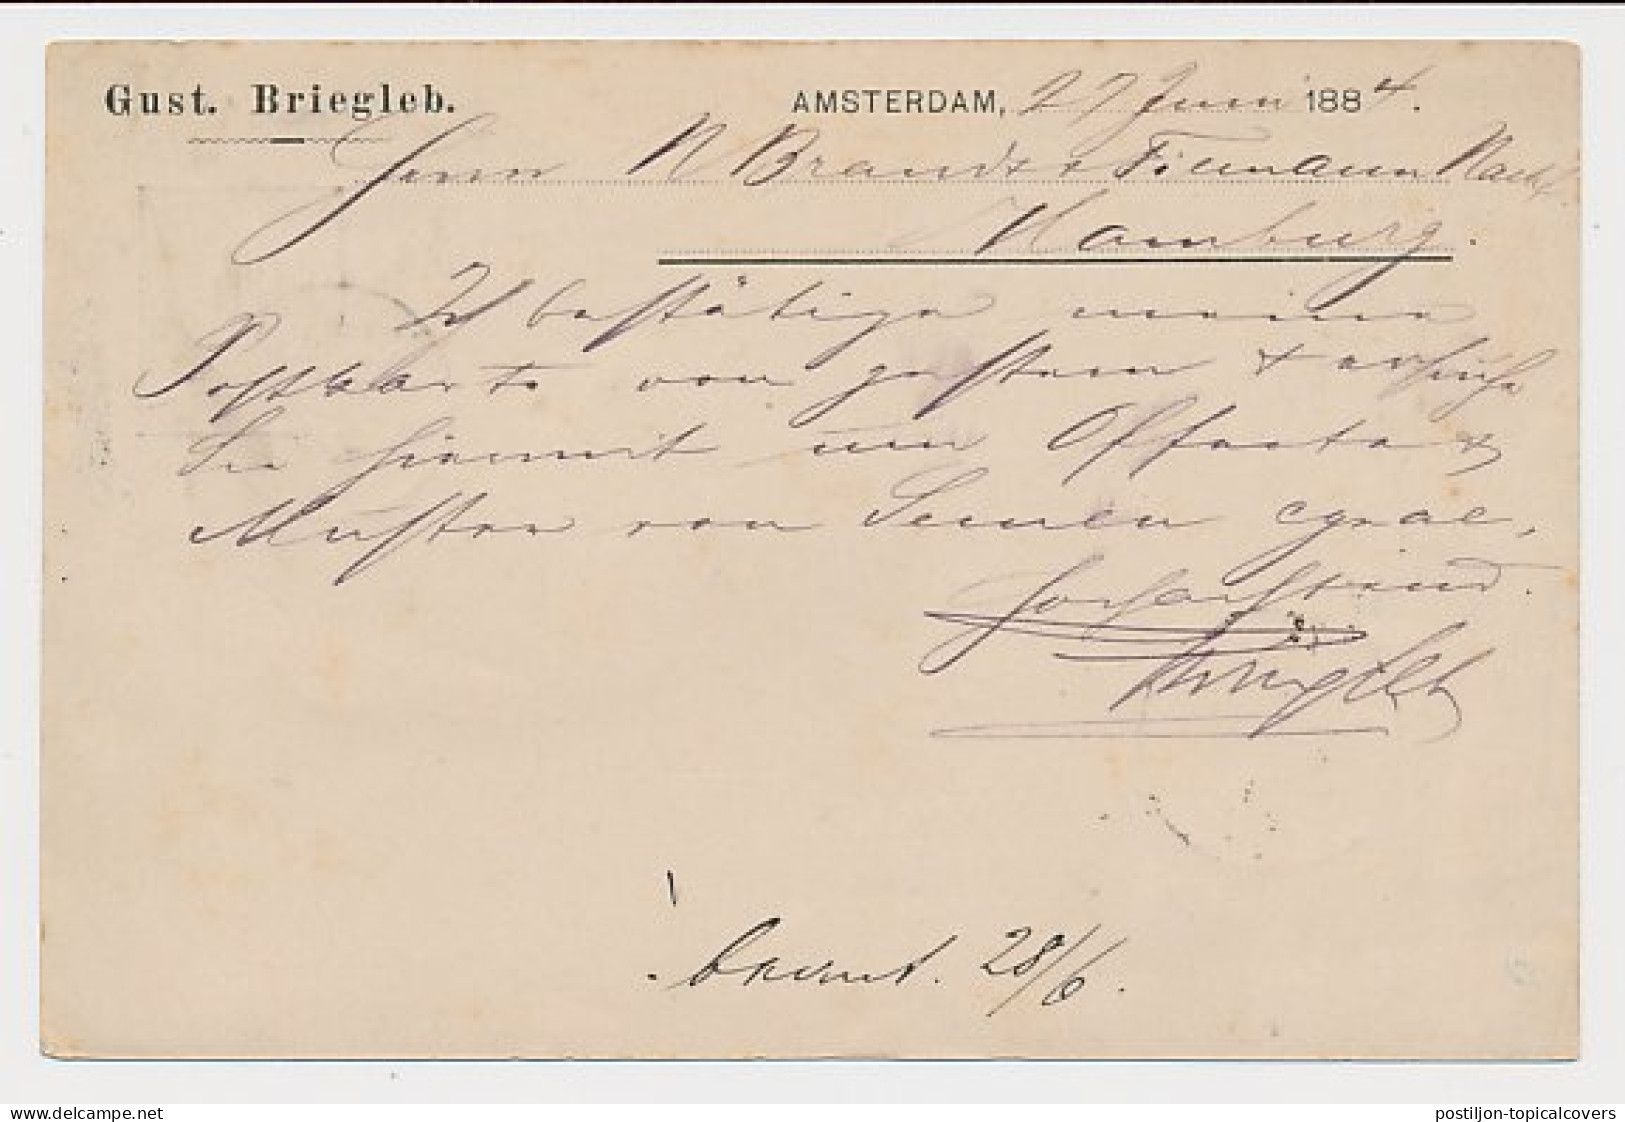 Gust. Briegleb.
AMSTERDAM, 27 Juni 1884.
Herrn N Brandt & Tiemann Nachf.
Hamburg.
Ich bestätige meine
Postkarte von gestern & ersuche
Sie hiermit um Offerte &
Muster von Semen cynae,
Hochachtend.
Briegleb
beantw. 28/6.
delcampe.net
postiljon-topicalcovers